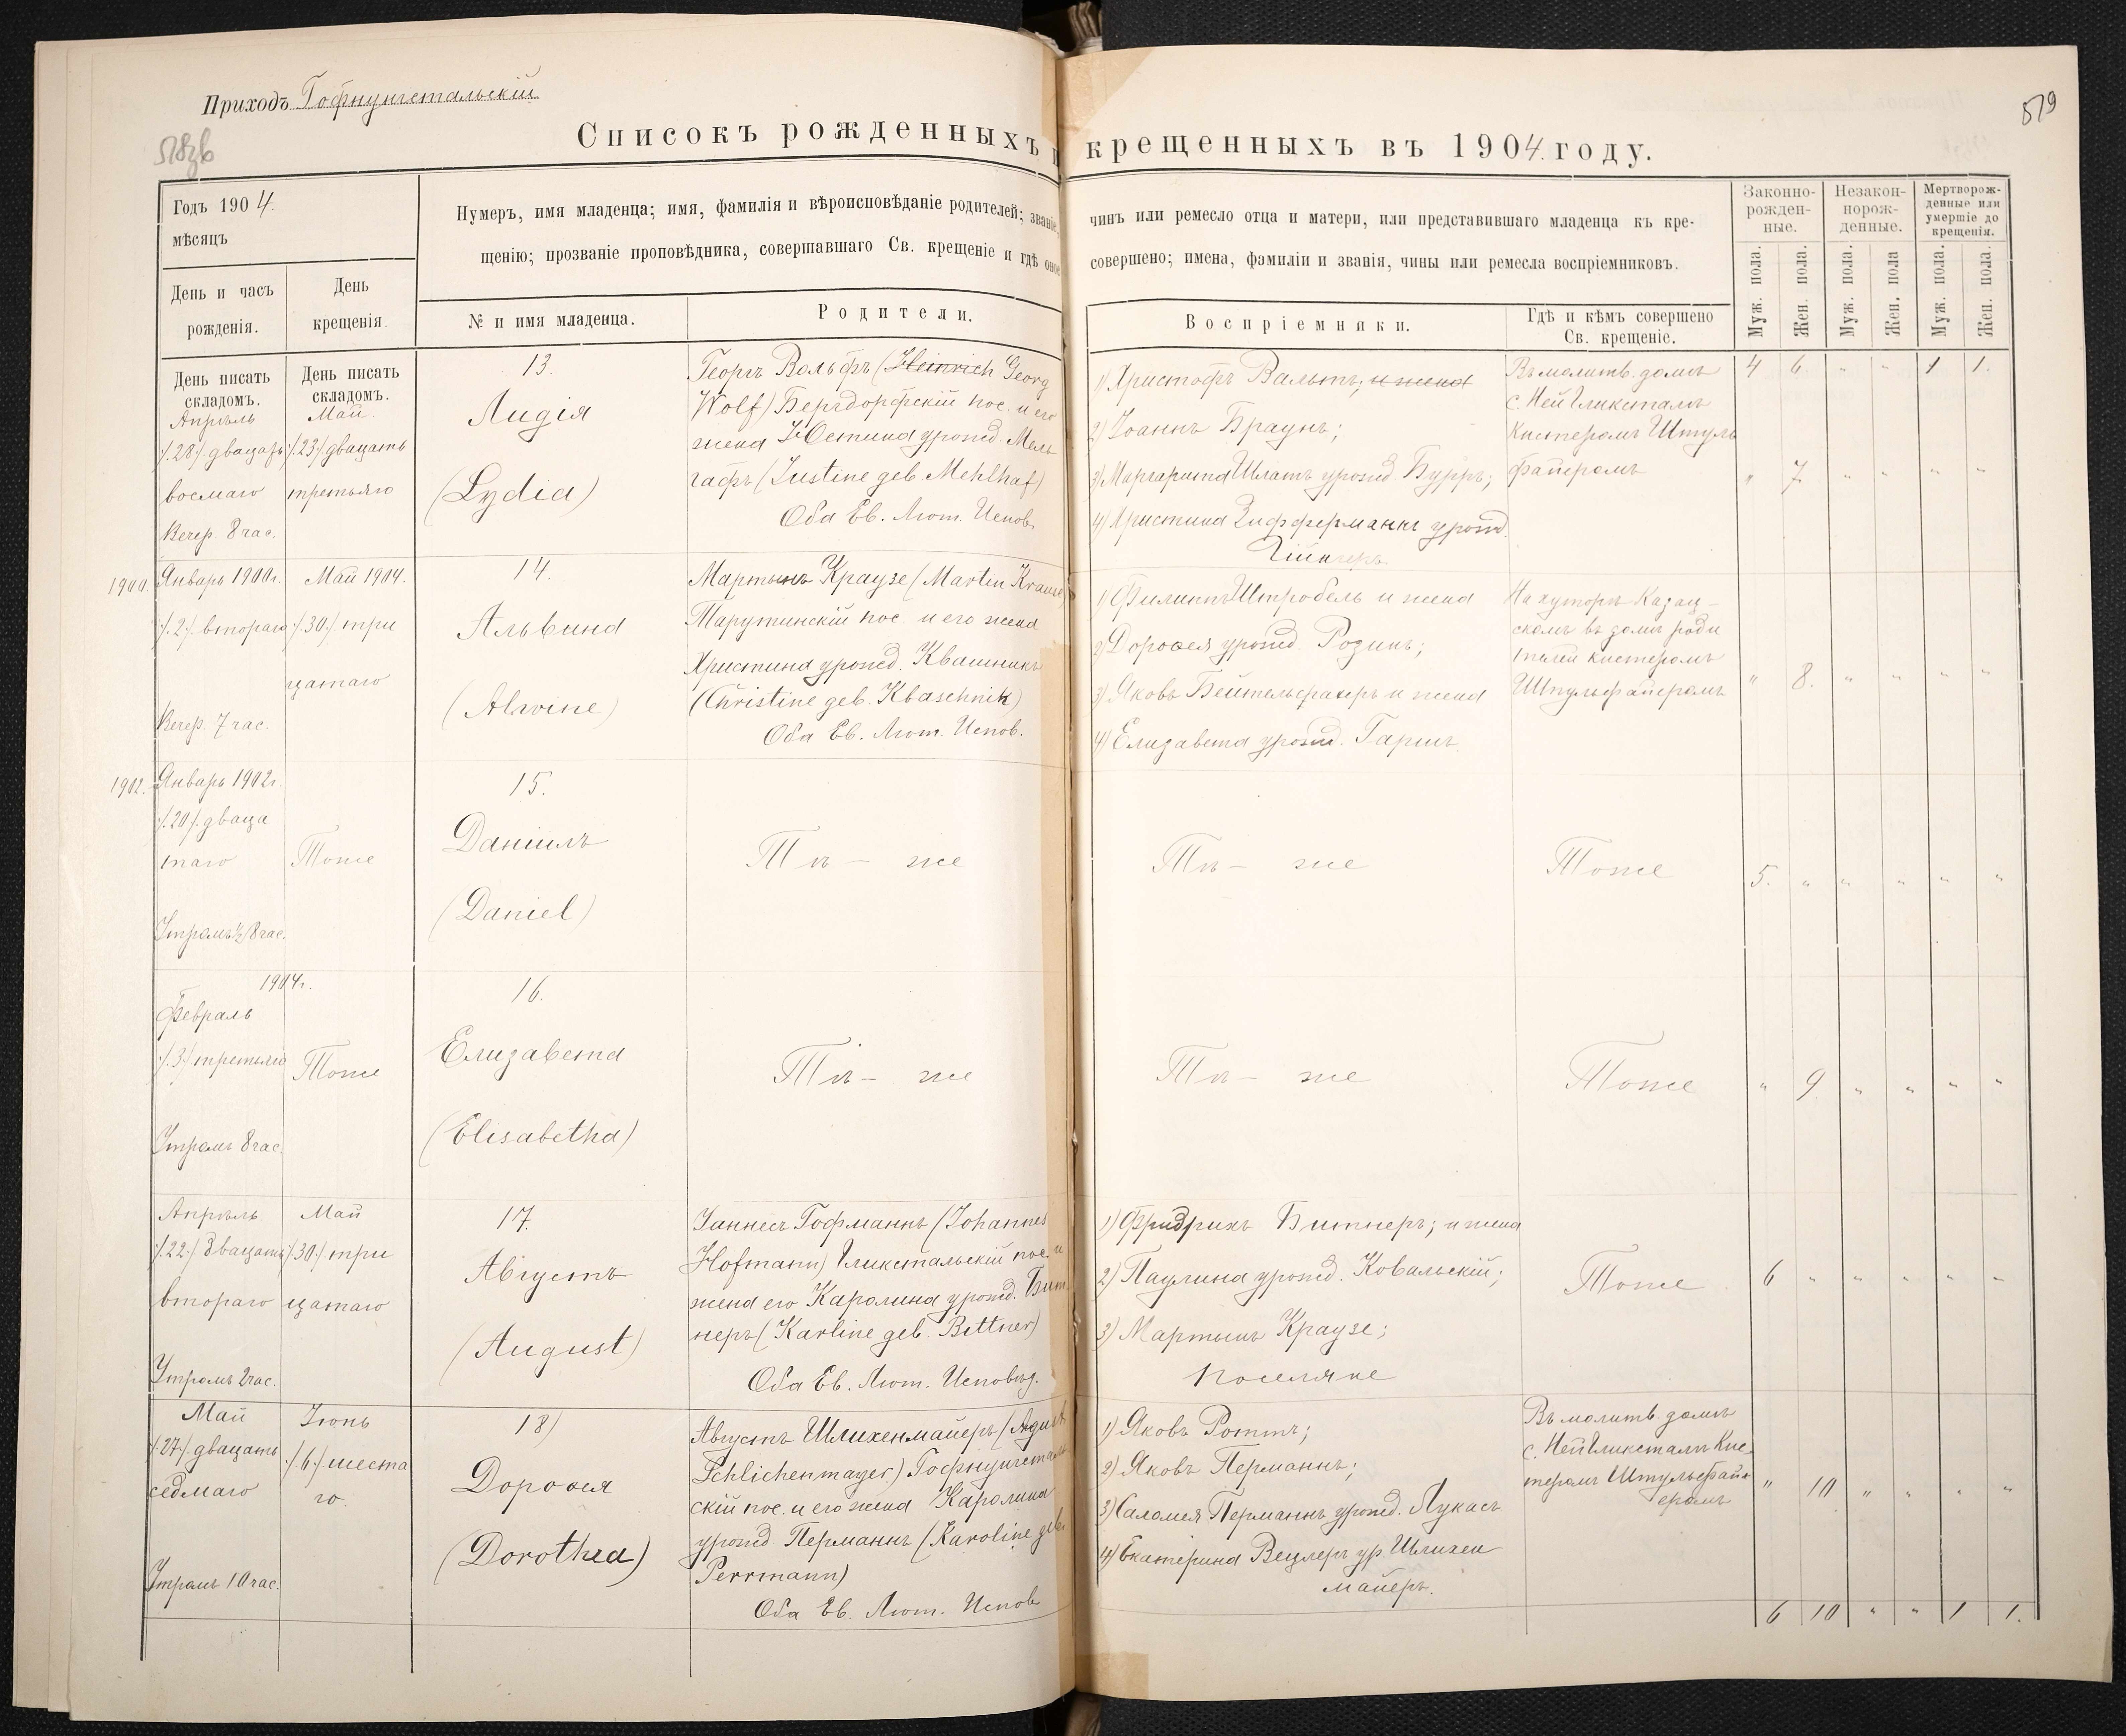 Приходъ Гофнунгстальскій
518зв
519
Списокъ рожденныхъ и крещенныхъ въ 1904 году.
Годъ 1904.
мѣсяцъ
Нумеръ, имя младенца; имя, фамилія и вѣроисповѣданіе родителей; званіе, чинъ или ремесло отца и матери, или представившаго младенца къ кре-
щенію; прозваніе проповѣдника, совершавшаго Св. крещеніе и гдѣ оное совершено; имена, фамиліи и званія, чины или ремесла воспріемниковъ.
День и часъ
рожденія.
День
крещенія.
№ и имя младенца.
Родители.
Воспріемники.
Гдѣ и кѣмъ совершено
Св. крещеніе.
Законно-
рожден-
ные.
Незакон-
норож-
денные.
Мертворож-
денные или
умершіе до
крещенія.
Муж. пола.
Жен. пола.
Муж. пола.
Жен. пола
Муж. пола.
Жен. пола.
День писать
складомъ.
День писать
складомъ.
Апрѣль
/.28/. двадцать
восмаго
Вечер. 8 час.
Май.
/.23/. двацать
третьяго
13.
Лидія
(Lydia)
Георгъ Вольфъ (Heinrich Georg
Wolf) Бергдорфскій пос. и его
жена Юстина урожд. Мель
гафъ (Justine geb. Mehlhaf)
Оба Ев. Лют. Испов.
1) Христофъ Вальтъ; и жена
2) Іоаннъ Браунъ;
3) Маргарита Шлатъ урожд. Бурръ;
4) Христина Зифферманнъ урожд.
Въ молитв. домѣ
с. Ней Гликсталь
Кистеромъ Штуль
файеромъ
4 6 " " 1 1.
" 7. " " " "
1900.
Январь 1900 г.
/.2/. втораго
Вечер. 7 час.
Май 1904.
/.30/. три
цатаго
14.
Альвина
(Alwine)
Мартынъ Краузе (Martin Krause)
Тарутинскій пос. и его жена
Христина урожд. Квашникъ
(Christine geb. Kwaschnik)
Оба Ев. Лют. Испов.
1) Филиппъ Штробель и жена
2) Дороѳея урожд. Розинъ;
3) Яковъ Бейтельсрахеръ и жена
4) Елизавета урожд.
На хуторѣ Казац-
скомъ въ домѣ роди
телей кистеромъ
Штульфайеромъ
" 8. " " " "
1902.
Январь 1902 г.
/.20/. дваца
таго
Утромъ ½8 час.
Тоже
15.
Даніилъ
(Daniel)
Тѣ - же
Тѣ - же
Тоже
5. " " " " "
1904 г.
Февраль
/.3/. третьяго
Утромъ 8 час.
Тоже
16.
Елизавета
(Elisabetha)
Тѣ - же
Тѣ - же
Тоже
" 9. " " " "
Апрѣль
/.22/. двацать
втораго
Утромъ 2 час.
Май
/.30/. три
цатаго
17.
Августъ
(August)
Іаннесъ Гофманнъ (Johannes
Hofmann) Гликстальскій пос. и
жена его Каролина урожд. Бит
неръ (Karline geb. Bittner)
Оба Ев. Лют. Исповѣд.
1) Фридрихъ Битнеръ; и жена
2) Паулина урожд. Ковальскій;
3) Мартынъ Краузе;
поселяне
Тоже
6 " " " " "
Май
/.27/. двацать
седмаго
Утромъ 10 час.
Іюнь
/.6/. шеста
го.
18)
Дороѳея
(Dorothea)
Августъ Шлихенмайеръ (August
Schlichenmayer) Гофнунгсталь
скій пос. и его жена Каролина
урожд Перманнъ (Karoline geb.
Perrmann)
Оба Ев. Лют. Испов
1) Яковъ Роттъ;
2) Яковъ Перманнъ;
3) Саломея Перманнъ урожд. Лукасъ
4) Екатерина Вецлеръ ур. Шлихен
майеръ.
Въ молитв. домѣ
с. Ней Гликсталь Кис
теромъ Штульфай-
еромъ
" 10 " " " "
6 10 " " 1 1.